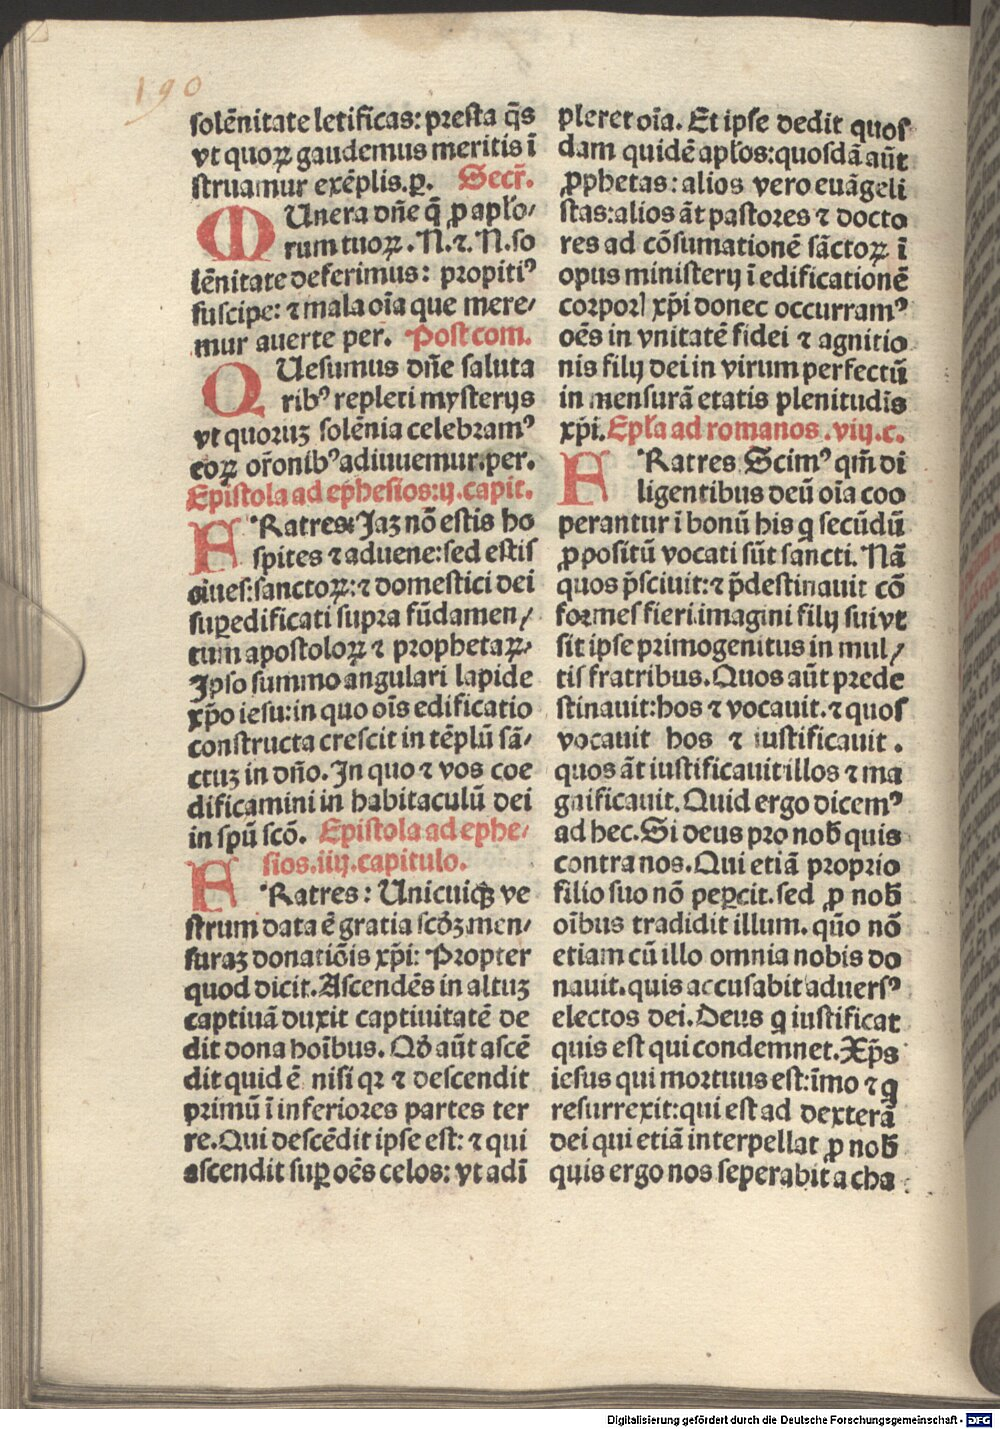 190
solēnitate letificas: presta q̄s
vt quoꝝ gaudemus meritis ī
struamur exēplis.ꝑ. Secr̄.
MUnera dn̄e q̄ ꝓ apl̄o/
rum tuoꝝ. N.⁊. N. so
lēnitate deferimus: propitiꝰ
suscipe: ⁊ mala oīa que mere/
mur auerte per. Post com.
QUesumus dn̄e saluta
ribꝰ repleti mysterijs
vt quoruꝫ solēnia celebramꝰ
eoꝝ or̄onibꝰ adiuuemur.per.
Epistola ad ephesios:ij.capit.
FRatres: Jaꝫ nō estis ho
spites ⁊ aduene: sed estis
ciues: sanctoꝝ: ⁊ domestici dei
suꝑedificati supra fūdamen/
tum apostoloꝝ ⁊ prophetaꝝ.
Ipso summo angulari lapide
xp̄o iesu: in quo oīs edificatio
constructa crescit in tēplū sā/
ctuꝫ in dn̄o. In quo ⁊ vos coe
dificamini in habitaculū dei
in spū scō. Epistola ad ephe/
sios.iiij.capitulo.
FRatres: Unicuiqꝫ ve
strum data ē gratia scd̄ꝫ men/
suraꝫ donatiōis xp̄i: Propter
quod dicit. Ascendēs in altuꝫ
captiuā duxit captiuitatē de
dit dona hoībus. Qd̄ aūt ascē
dit quid ē nisi qꝛ ⁊ descendit
primū ī inferiores partes ter
re. Qui descēdit ipse est: ⁊ qui
ascendit suꝑ oēs celos: vt adī
pleret oīa. Et ipse dedit quos
dam quidē apl̄os: quosdā aūt
ꝓphetas: alios vero euāgeli
stas: alios āt pastores ⁊ docto
res ad cōsumationē sāctoꝝ ī
opus ministerij ī edificationē
corporꝭ xp̄i donec occurramꝰ
oēs in vnitatē fidei ⁊ agnitio
nis filij dei in virum perfectū
in mensurā etatis plenitudīs
xp̄i. Epl̄a ad romanos .viij.c.
FRatres Scimꝰ qm̄ di
ligentibus deū oīa coo
perantur ī bonū his q secūdū
ꝓpositū vocati sūt sancti. Nā
quos p̄sciuit: ⁊ p̄destinauit cō
formes fieri imagini filij sui vt
sit ipse primogenitus in mul/
tis fratribus. Quos aūt prede
stinauit: hos ⁊ vocauit. ⁊ quos
vocauit hos ⁊ iustificauit.
quos āt iustificauit illos ⁊ ma
gnificauit. Quid ergo dicemꝰ
ad hec. Si deus pro nob̄ quis
contra nos. Qui etiā proprio
filio suo nō peꝑcit. sed ꝓ nob̄
oībus tradidit illum. qūo nō
etiam cū illo omnia nobis do
nauit. quis accusabit aduersꝰ
electos dei. Deus q iustificat
quis est qui condemnet. Xp̄s
iesus qui mortuus est: īmo ⁊ q
resurrexit: qui est ad dexterā
dei qui etiā interpellat ꝓ nob̄
quis ergo nos seperabit a cha
Digitalisierung gefördert durch die Deutsche Forschungsgemeinschaft - DFG